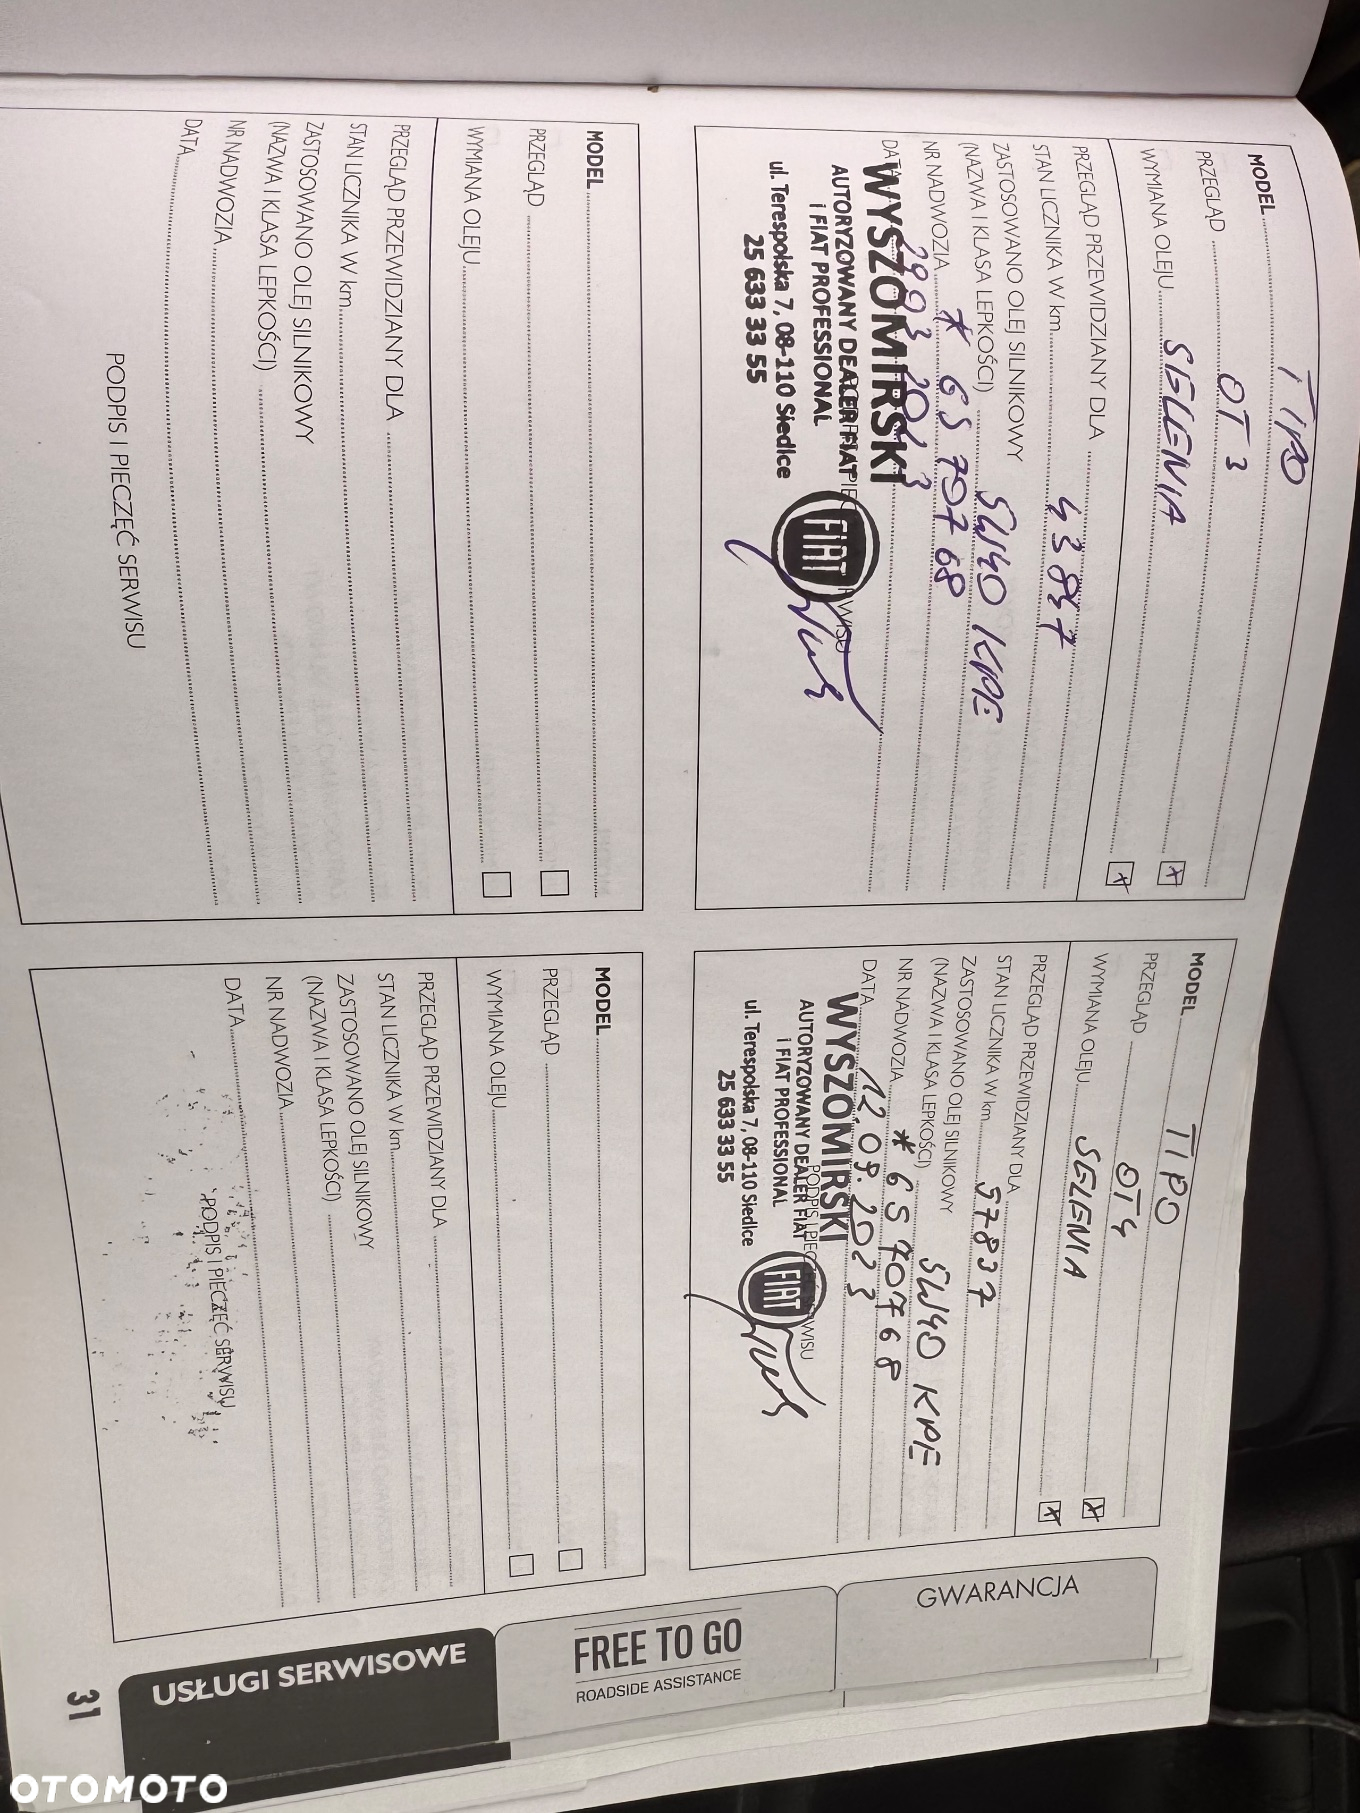 MODEL TIPO
PRZEGLĄD OT 3
WYMIANA OLEJU SELENIA
PRZEGLĄD PRZEWIDZIANY DLA
STAN LICZNIKA W km 43847
ZASTOSOWANO OLEJ SILNIKOWY
(NAZWA I KLASA LEPKOŚCI) 5W40 KPE
NR NADWOZIA * 6S70768
DATA
WYSZOMIRSKI
AUTORYZOWANY DEALER FIAT
i FIAT PROFESSIONAL
ul. Terespolska 7, 08-110 Siedlce
25 633 33 55
FIAT
MODEL TIPO
PRZEGLĄD OT4
WYMIANA OLEJU SELENIA
PRZEGLĄD PRZEWIDZIANY DLA
STAN LICZNIKA W km 57837
ZASTOSOWANO OLEJ SILNIKOWY
(NAZWA I KLASA LEPKOŚCI) 5W40 KPE
NR NADWOZIA * 6S70768
DATA 12.09.2023
WYSZOMIRSKI
AUTORYZOWANY DEALER FIAT
i FIAT PROFESSIONAL
ul. Terespolska 7, 08-110 Siedlce
25 633 33 55
FIAT
MODEL
PRZEGLĄD
WYMIANA OLEJU
PRZEGLĄD PRZEWIDZIANY DLA
STAN LICZNIKA W km
ZASTOSOWANO OLEJ SILNIKOWY
(NAZWA I KLASA LEPKOŚCI)
NR NADWOZIA
DATA
PODPIS I PIECZĘĆ SERWISU
MODEL
PRZEGLĄD
WYMIANA OLEJU
PRZEGLĄD PRZEWIDZIANY DLA
STAN LICZNIKA W km
ZASTOSOWANO OLEJ SILNIKOWY
(NAZWA I KLASA LEPKOŚCI)
NR NADWOZIA
DATA
PODPIS I PIECZĘĆ SERWISU
GWARANCJA
FREE TO GO
ROADSIDE ASSISTANCE
USŁUGI SERWISOWE
31
OTOMOTO